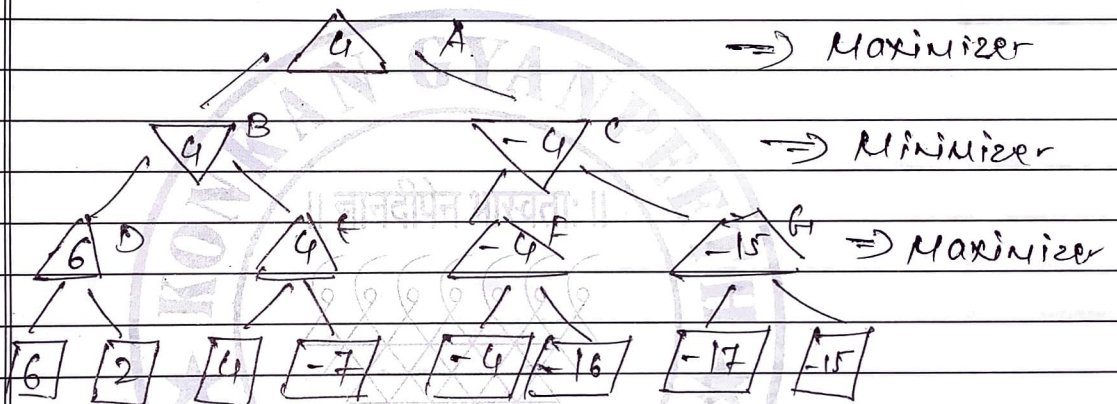 4 A. => Maximizer
4 B -4 C => Minimizer
6 D 4 E -4 F -15 G => Maximizer
6 2 4 -7 -4 -16 -17 -15
KONKAN GYAN
|| ज्ञानदीपेन भास्वता: ||